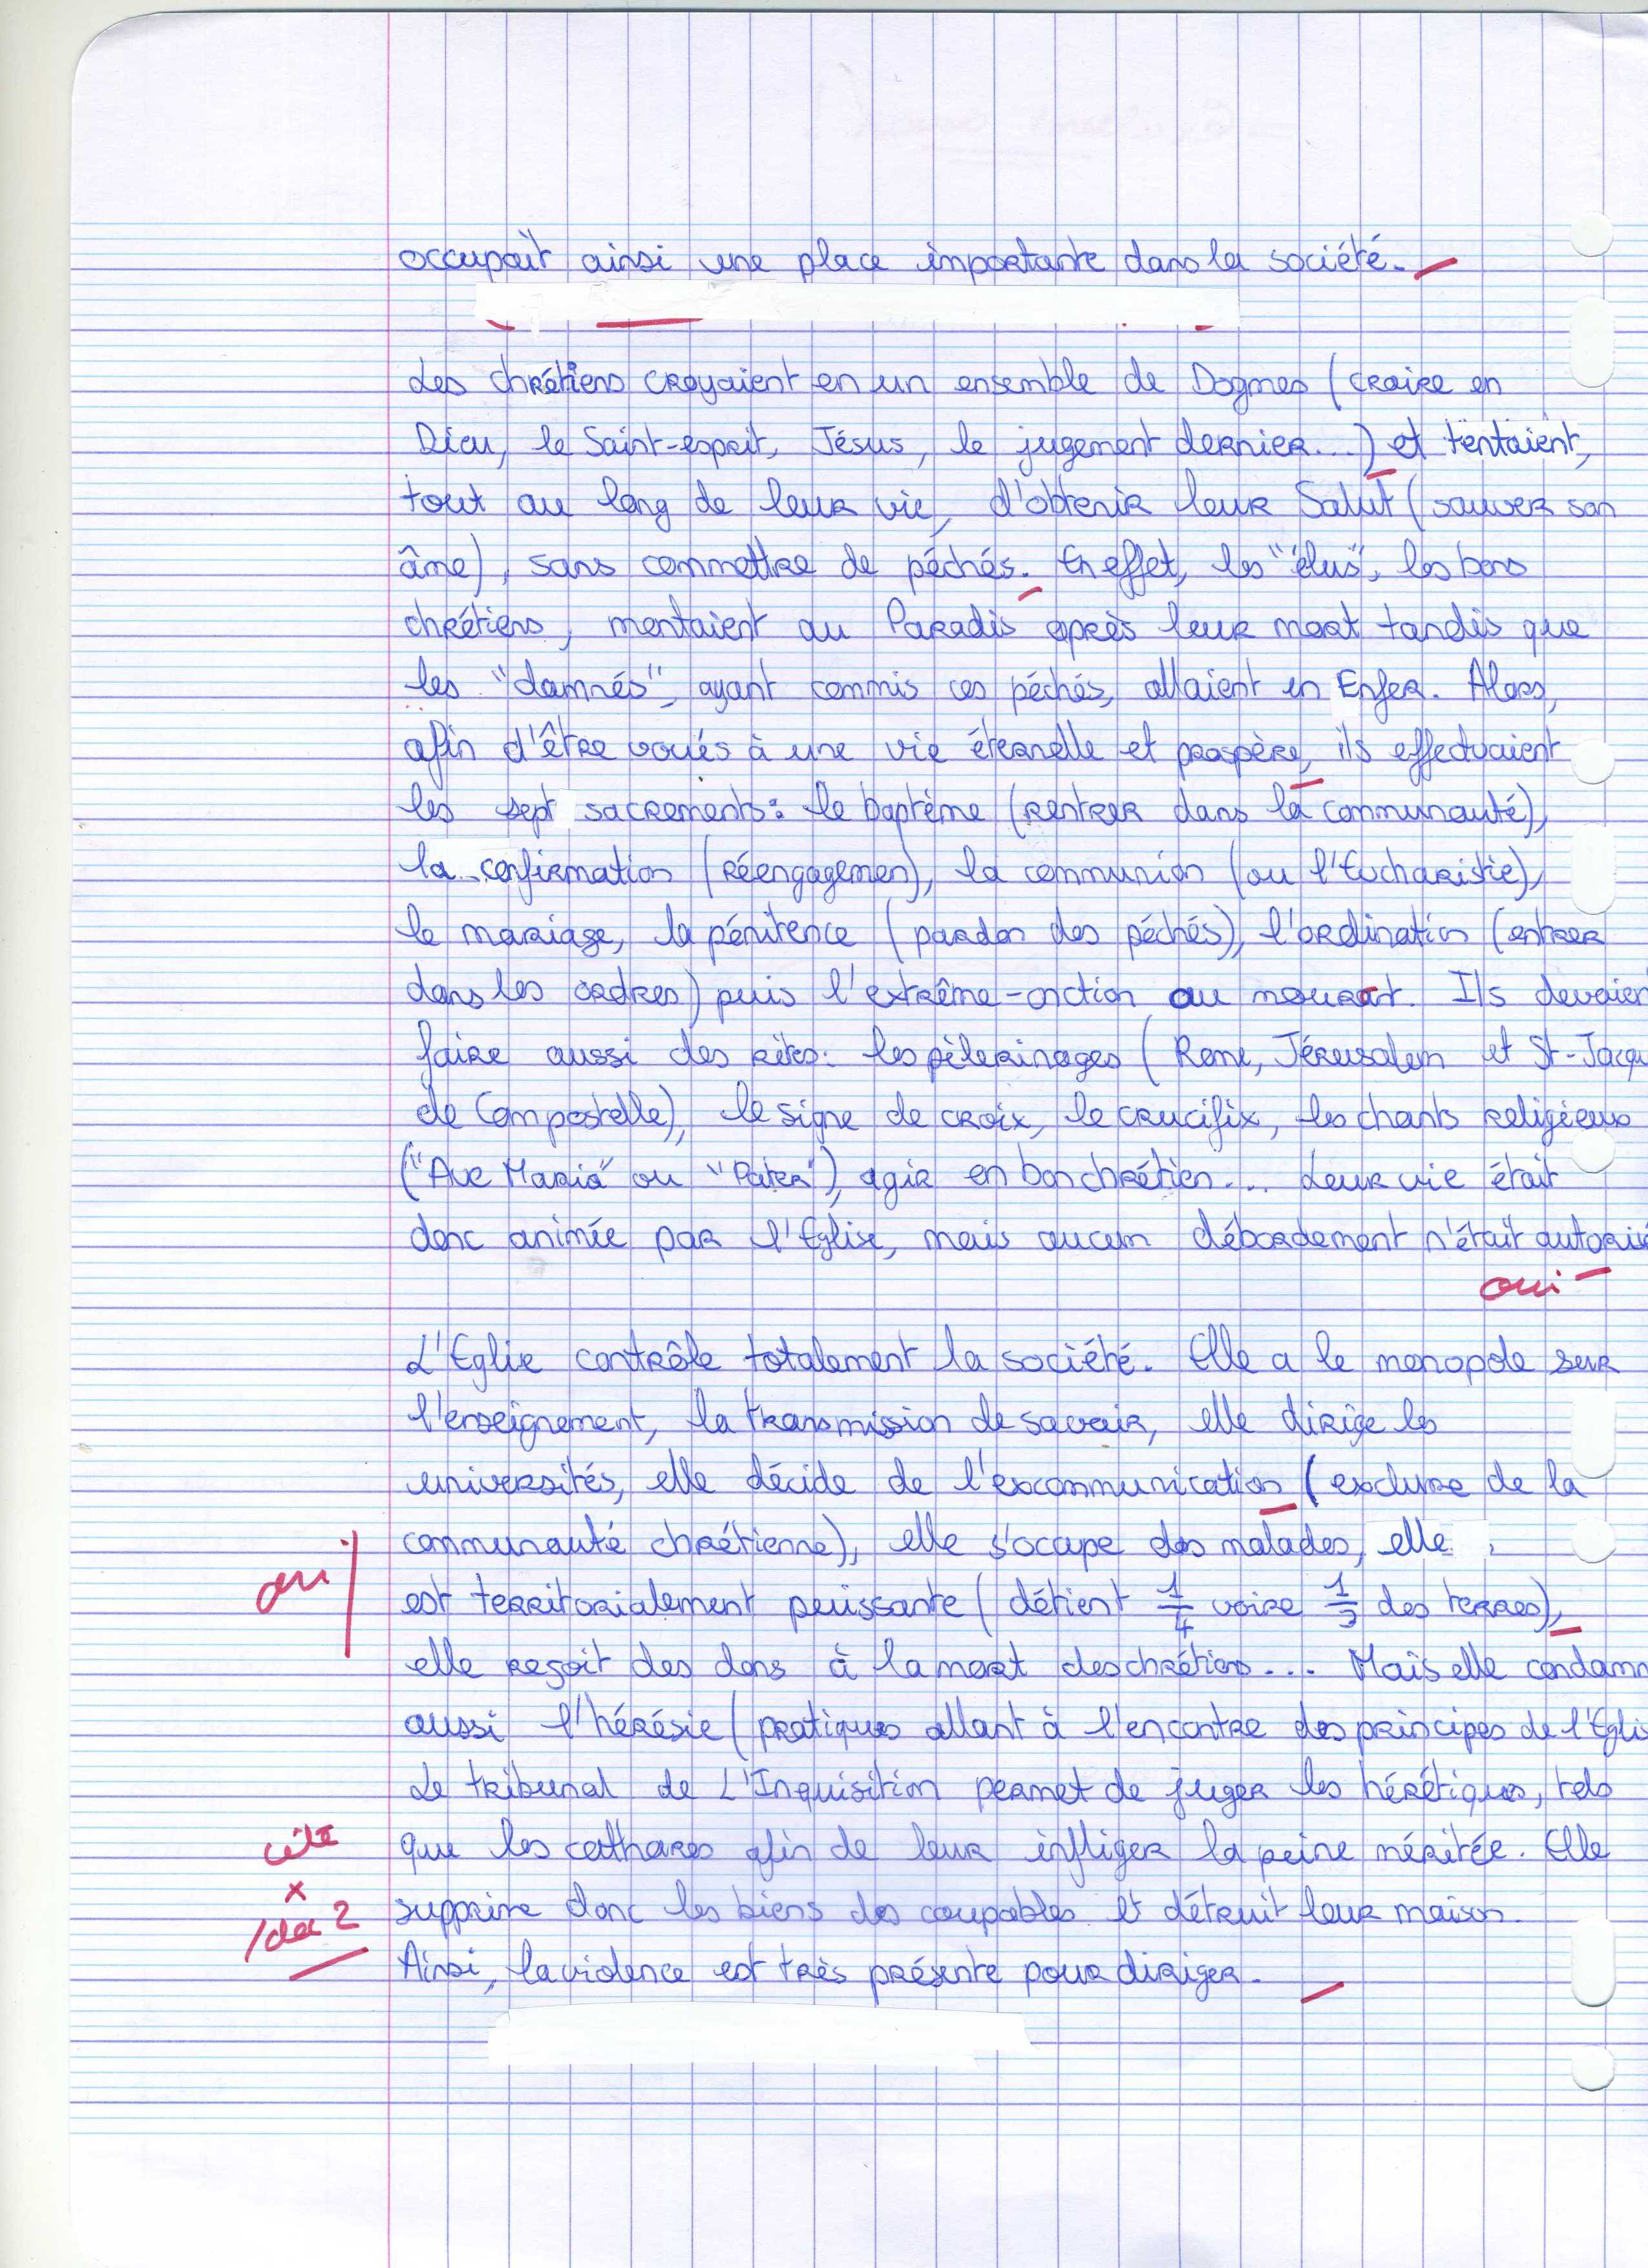 occupait ainsi une place importante dans la société.
Les chrétiens croyaient en un ensemble de Dogmes (croire en
Dieu, le Saint-esprit, Jésus, le jugement dernier...) et tentaient,
tout au long de leur vie, d'obtenir leur Salut (sauver son
âme), sans commettre de péchés. En effet, les "élus", les bons
chrétiens, montaient au Paradis après leur mort tandis que
les "damnés", ayant commis ces péchés, allaient en Enfer. Alors,
afin d'être voués à une vie éternelle et prospère, ils effectuaient
les sept sacrements: le baptême (rentrer dans la communauté),
la confirmation (réengagemen), la communion (ou l'Eucharistie),
le mariage, la pénitence (pardon des péchés), l'ordination (entrer
dans les ordres) puis l'extrême-onction au mourant. Ils devaien
faire aussi des rites: les pèlerinages (Rome, Jérusalem et St-Jacqu
de Compostelle), le signe de croix, le crucifix, les chants religieux
("Ave Maria" ou "Pater"), agir en bon chrétien... Leur vie était
donc animée par l'Eglise, mais aucun débordement n'était autorisé
oui
L'Eglise contrôle totalement la société. Elle a le monopole sur
l'enseignement, la transmission de savoir, elle dirige les
universités, elle décide de l'excommunication (exclure de la
communauté chrétienne), elle s'occupe des malades, elle
oui
est territorialement puissante (détient 1/4 voire 1/3 des terres),
elle reçoit des dons à la mort des chrétiens... Mais elle condamn
aussi l'hérésie (pratiques allant à l'encontre des principes de l'Eglis
Le tribunal de L'Inquisition permet de juger les hérétiques, tels
que les cathares afin de leur infliger la peine méritée. Elle
supprime donc les biens des coupables et détruit leur maison.
Ainsi, la violence est très présente pour diriger.
cite
x
/doc 2